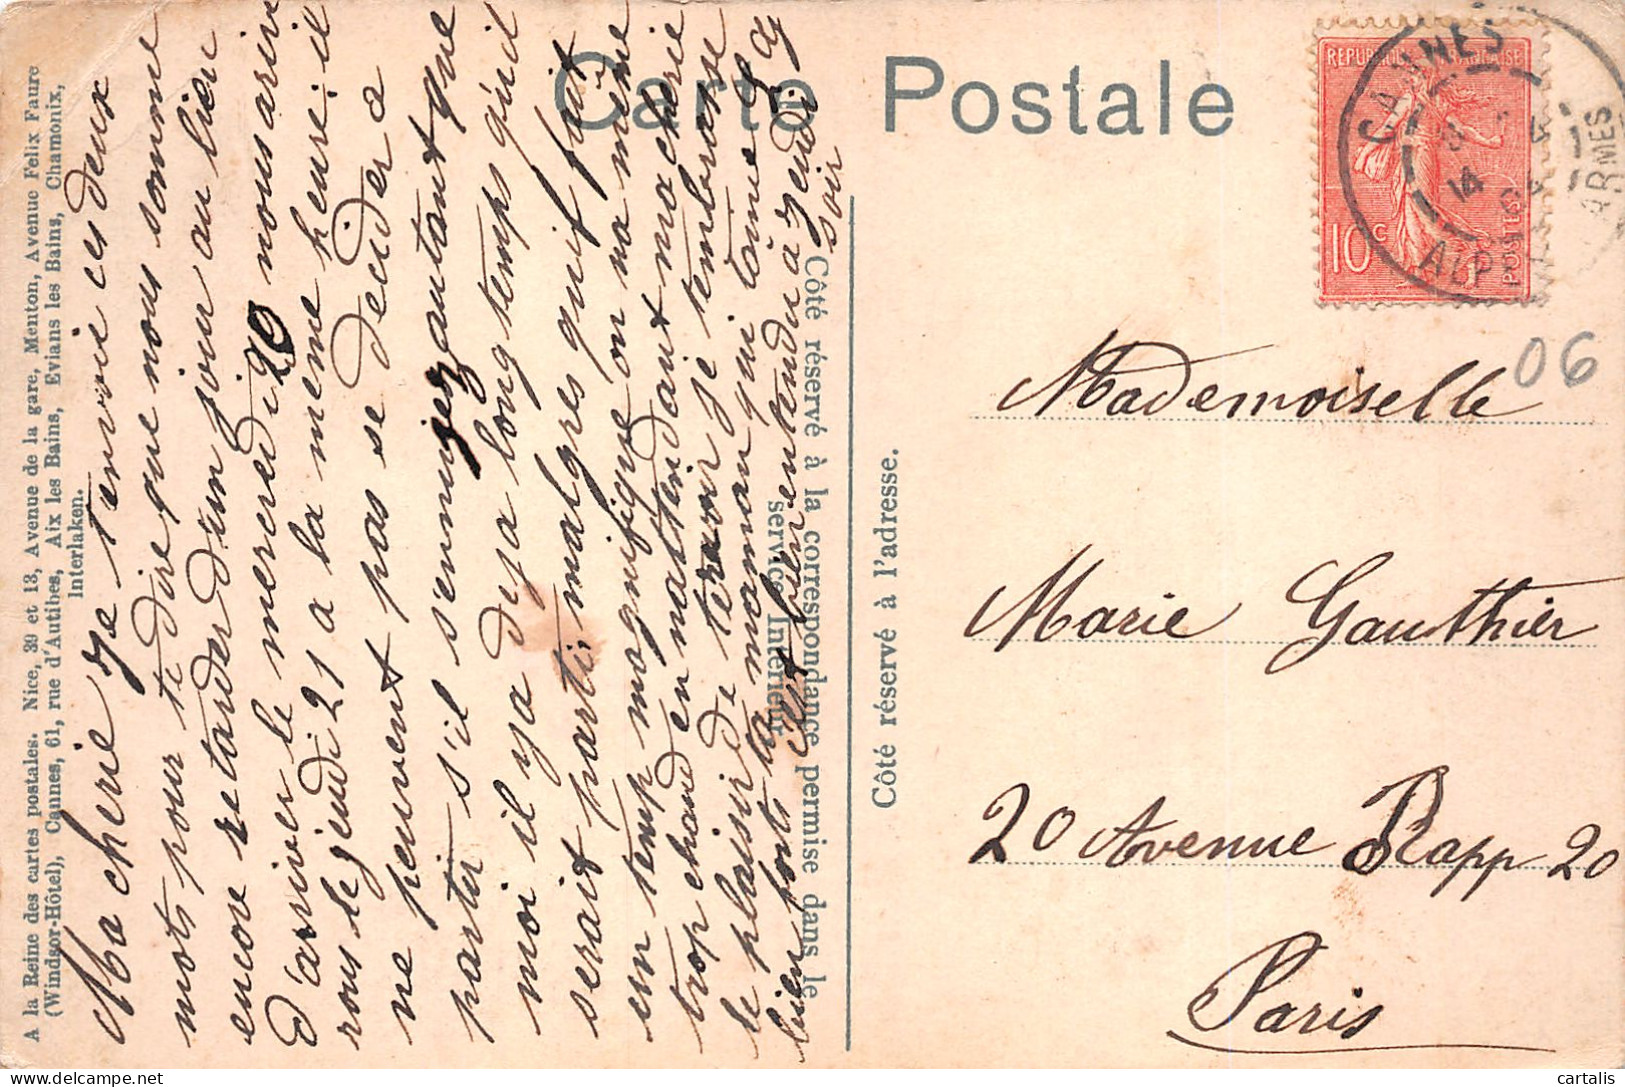 Carte Postale
A la Reine des cartes postales. Nice, 39 et 13, Avenue de la gare, Menton, Avenue Felix Faure
(Windsor-Hôtel), Cannes, 61, rue d'Autibes, Aix les Bains, Evians les Bains, Chamonix,
Interlaken.
Ma cherie je tenvoie ces deux
mots pour te dire que nous somme
encore retarder d'un jour au lieu
d'arriver le mercredi 20 nous arrivr
rons le jeudi 21 a la meme heure il
ne peuvent pas se decider a
partir s'il s'ennuyez autant que
moi il ya deja longtemps qu'il
serait parti, malgres quil fait
un temp magnifique on na même
trop chaud en nattendant ma cherie
le plaisir de te revoir je tembrasse
bien forts ta maman qui t'aime
bien entendu à jeudi
soir
Côté réservé à la correspondance permise dans le
service Intérieur
Côté réservé à l'adresse.
REPUBLIQUE FRANÇAISE
10 c
POSTES
CANNES
14
ALP ARMES
06
Mademoiselle
Marie Gauthier
20 Avenue Rapp 20
Paris
cartalis